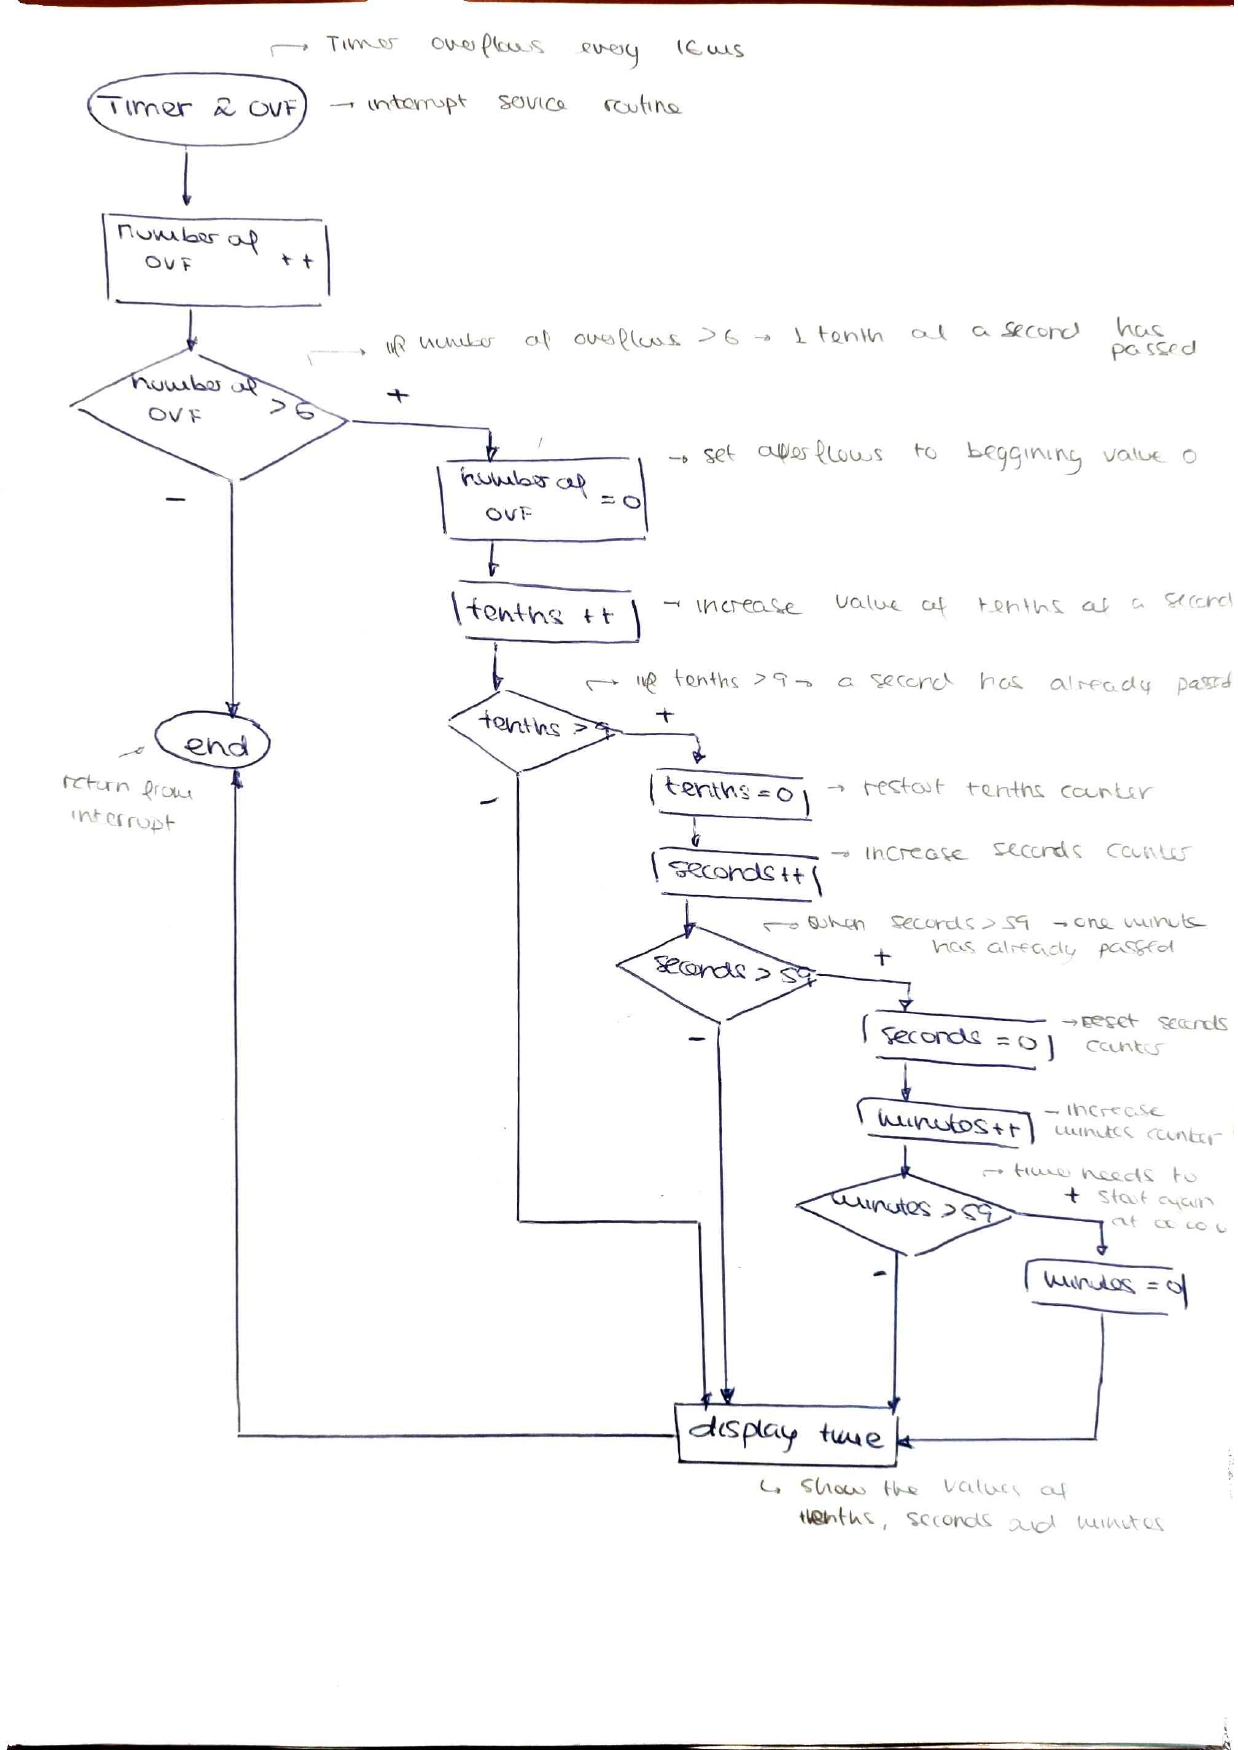 → Timer overflows every 16ms
Timer 2 OVF → interrupt service routine
number of
OVF ++
if number of overflows >6 → 1 tenth of a second has
passed
number of
OVF >6
+
-
→ set overflows to beggining value 0
number of
OVF =0
tenths ++ → increase value of tenths of a second
→ if tenths >9 → a second has already passed
tenths >9
+
-
end
return from
interrupt
tenths=0 → restart tenths counter
seconds++ → increase seconds counter
→ when seconds >59 → one minute
has already passed
seconds >59
+
-
seconds =0 → reset seconds
counter
minutes++ → increase
minutes counter
→ time needs to
start again
at
minutes >59
+
-
minutes =0
display time
↳ show the values of
tenths, seconds and minutes